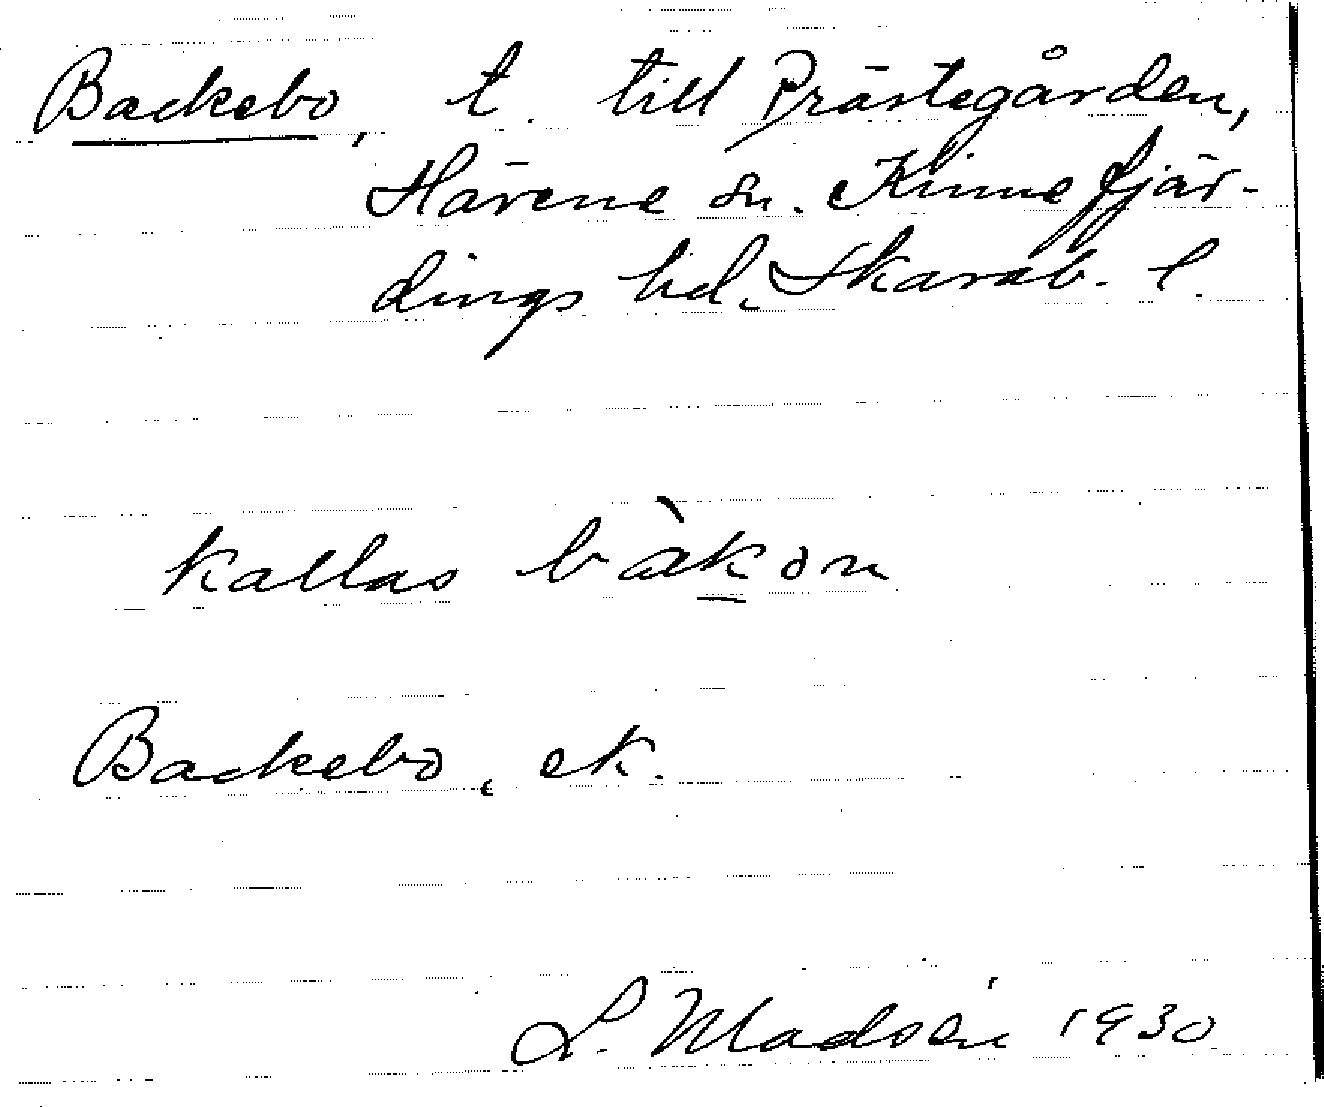 Backebo, t. till Prästegården,
Härene sn. Kinnefjär-
dings hd. Skarab. l.
kallas bàkon
Backebo, ek.
L. Madsén 1930